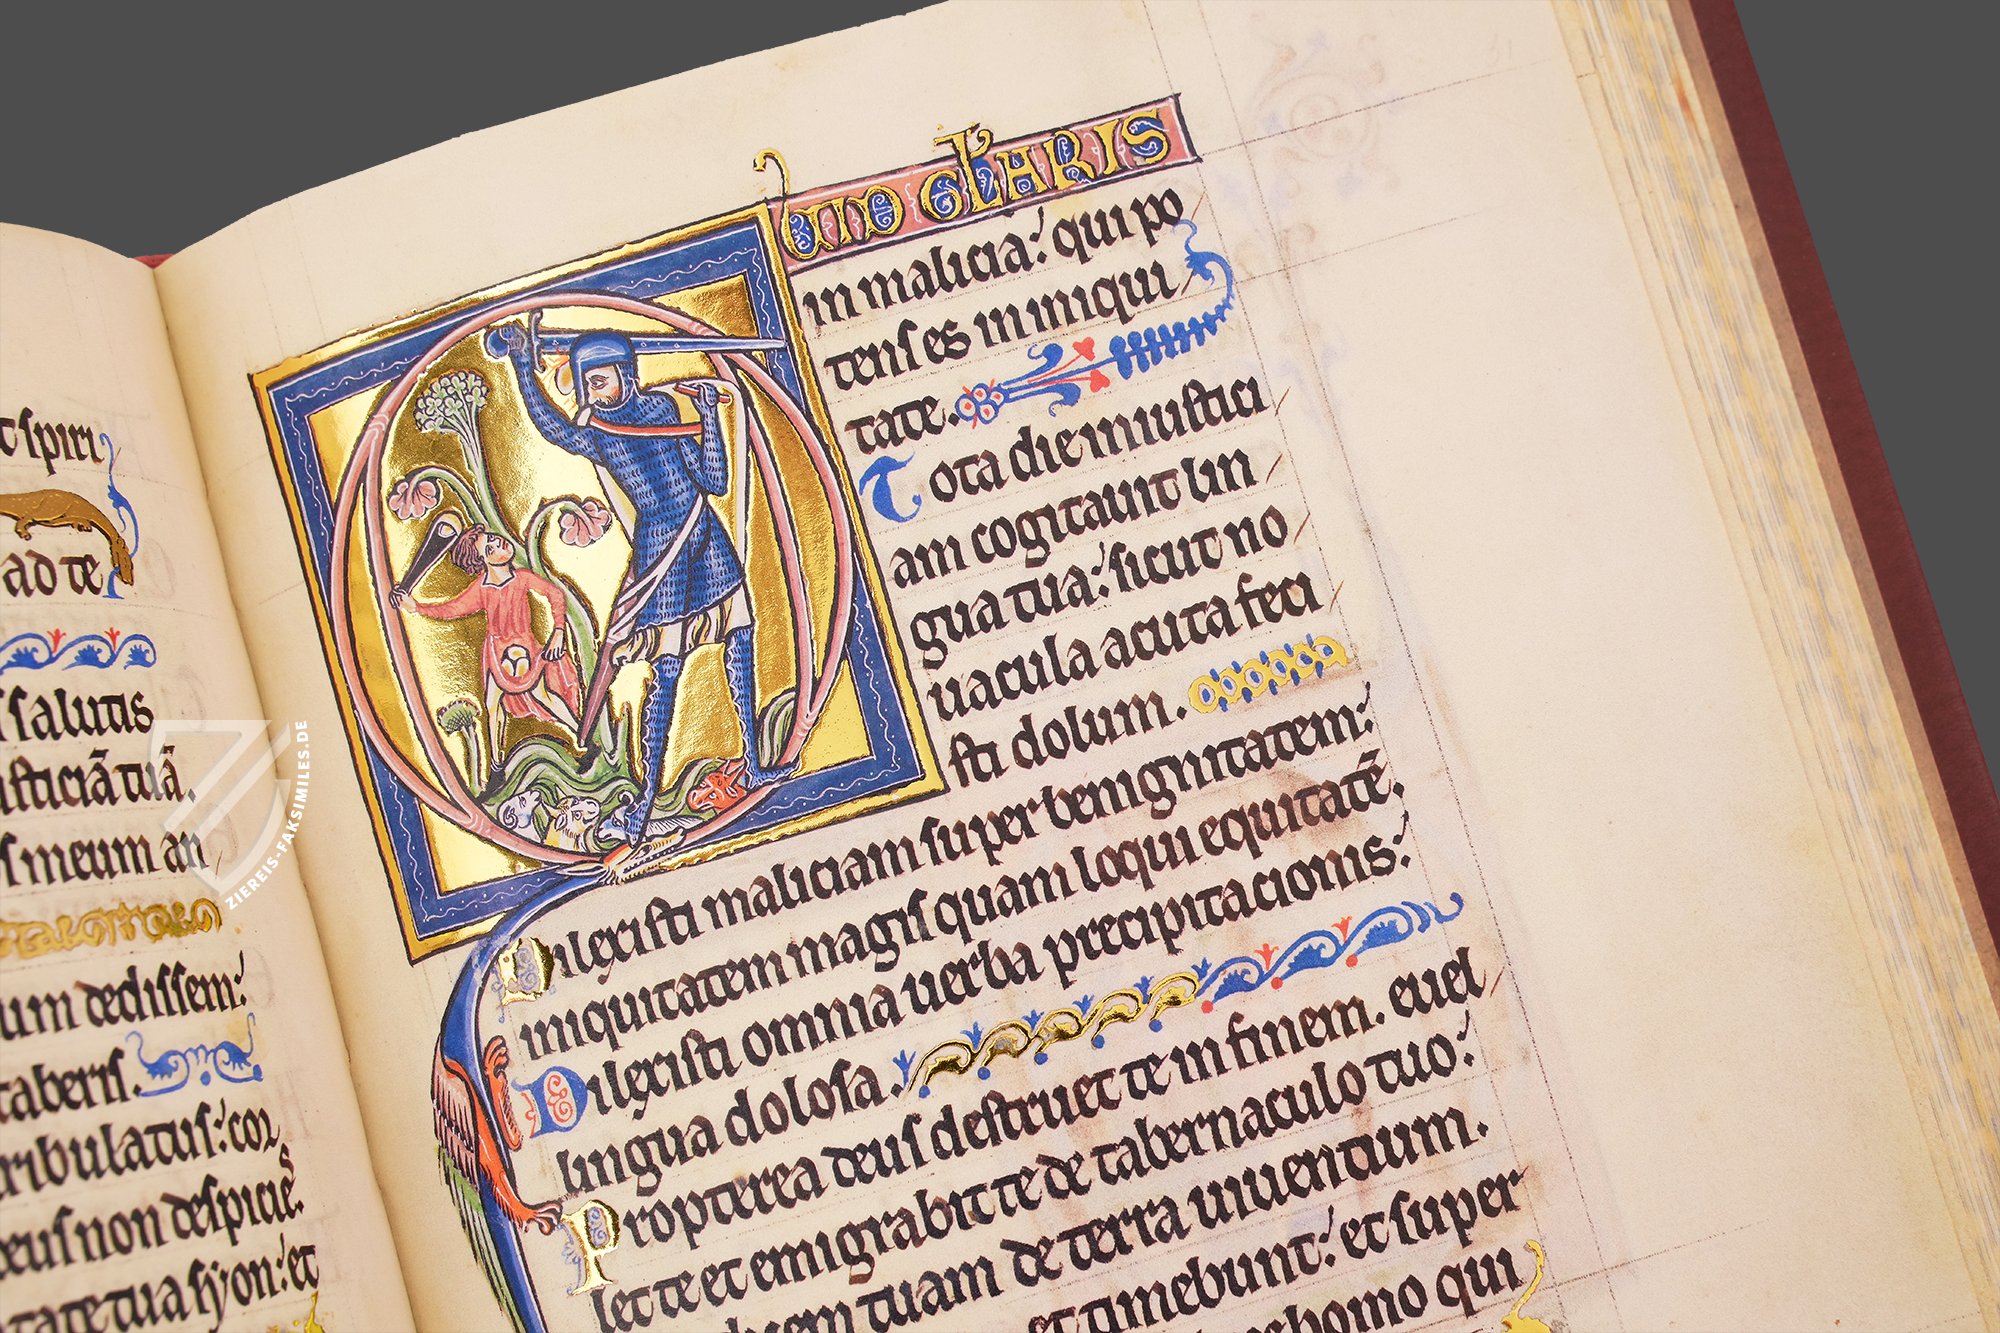 t spiri
ad te
salutis
isticiã tuã.
s meum an
um dedissem:
taberis.
ribulatus: cor
eus non despicies.
tate tua syon: et
QUID GLARIS
in malicia: qui po
tens es in iniqui
tate.
Tota die iniustici
am cogitauit lin
gua tua: sicut no
uacula acuta feci
sti dolum.
Dilexisti maliciam super benignitatem:
iniquitatem magis quam loqui equitatē.
Dilexisti omnia uerba precipitacionis:
lingua dolosa.
Propterea deus destruet te in finem. euel
let te et emigrabit te de tabernaculo tuo:
tuam de terra uiuentium.
et timebunt: et super
homo qui
ZIEREIS-FAKSIMILES.DE